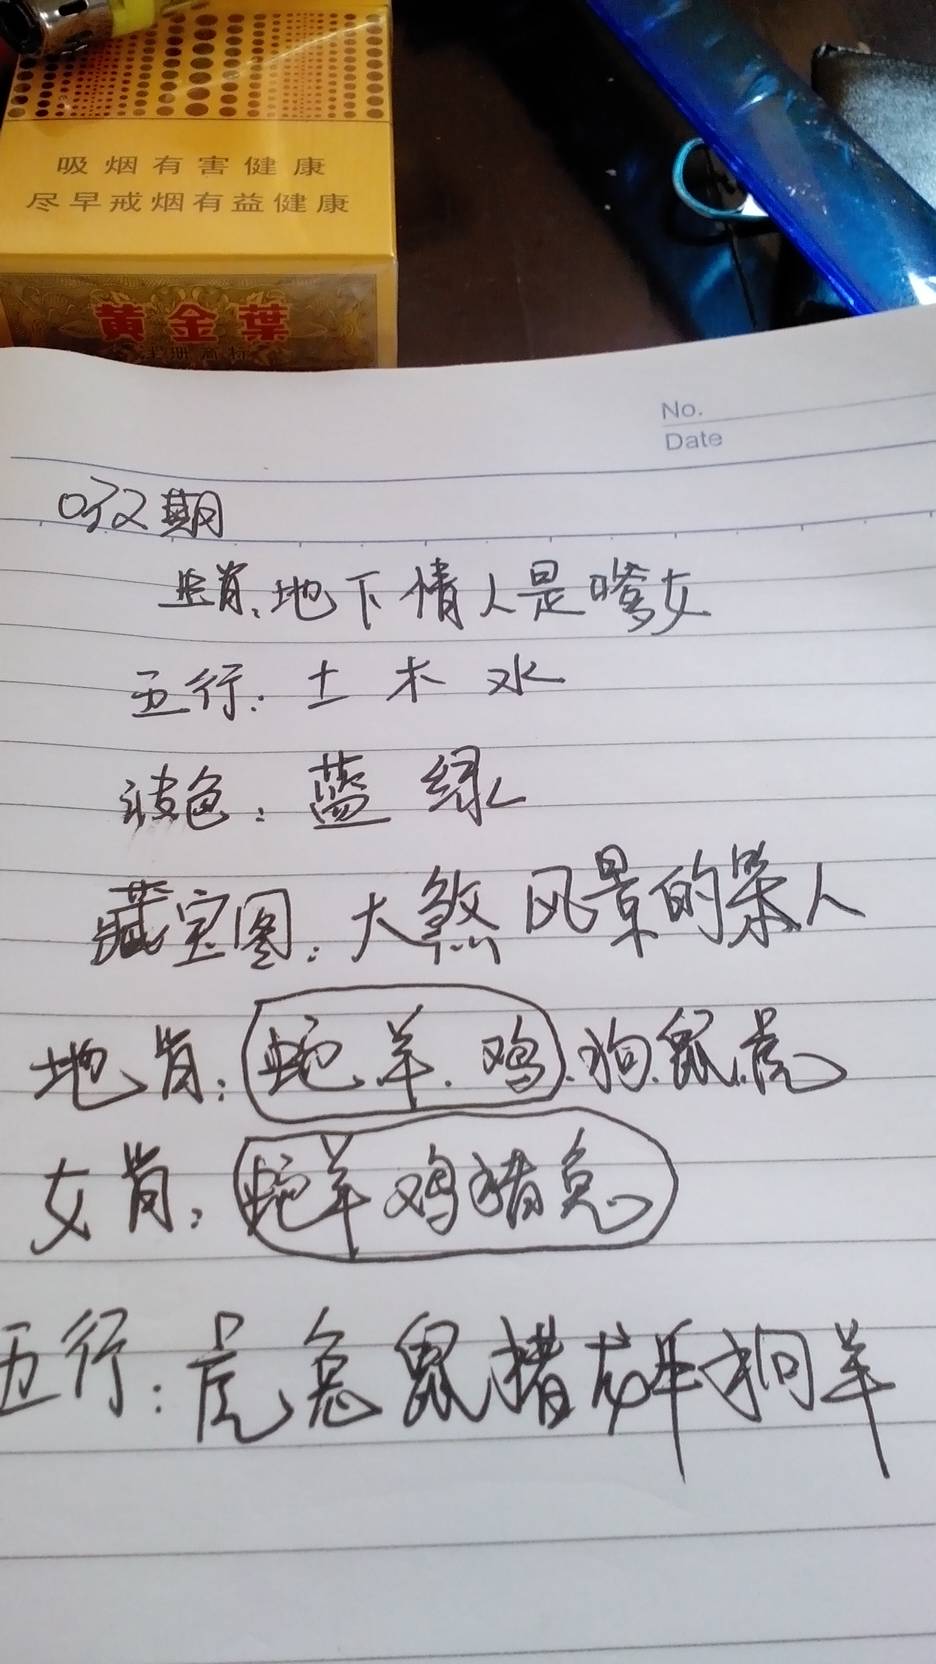 吸烟有害健康
尽早戒烟有益健康
黄金葉
No.
Date
期
生肖:地下情人是嗲女
五行:土木水
波色:蓝 绿
藏宝图:大煞风景的笨人
地肖:蛇羊.鸡.狗.鼠.虎
女肖:蛇羊鸡猪兔
五行:虎兔鼠猪龙牛狗羊